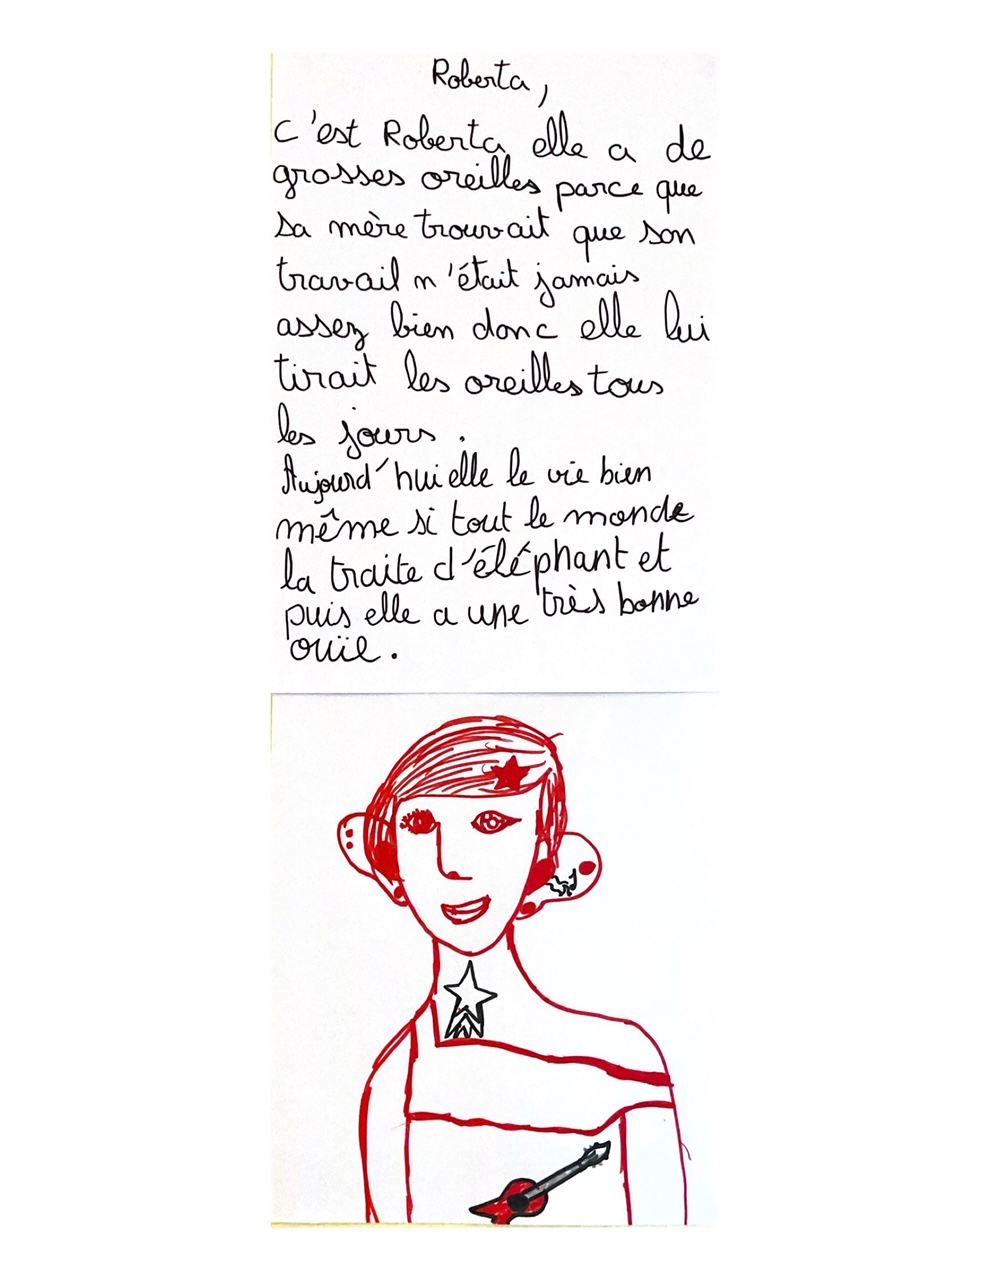 Roberta,
C'est Roberta elle a de
grosses oreilles parce que
sa mère trouvait que son
travail n'était jamais
assez bien donc elle lui
tirait les oreilles tous
les jours.
Aujourd'hui elle le vie bien
même si tout le monde
la traite d'éléphant et
puis elle a une très bonne
ouïe.